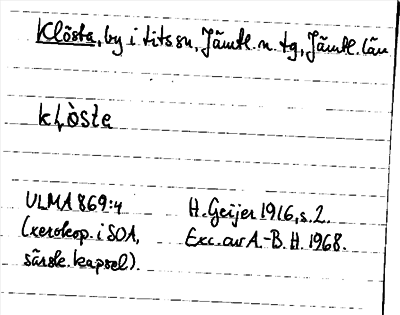 Klösta, by i Lits sn, Jämtl. n. tg, Jämtl. län
kḷòsta
ULMA 869:4 H. Geijer 1916, s. 2.
(xerokop. i SOA, Exc. av A.-B. H. 1968.
särsk. kapsel).